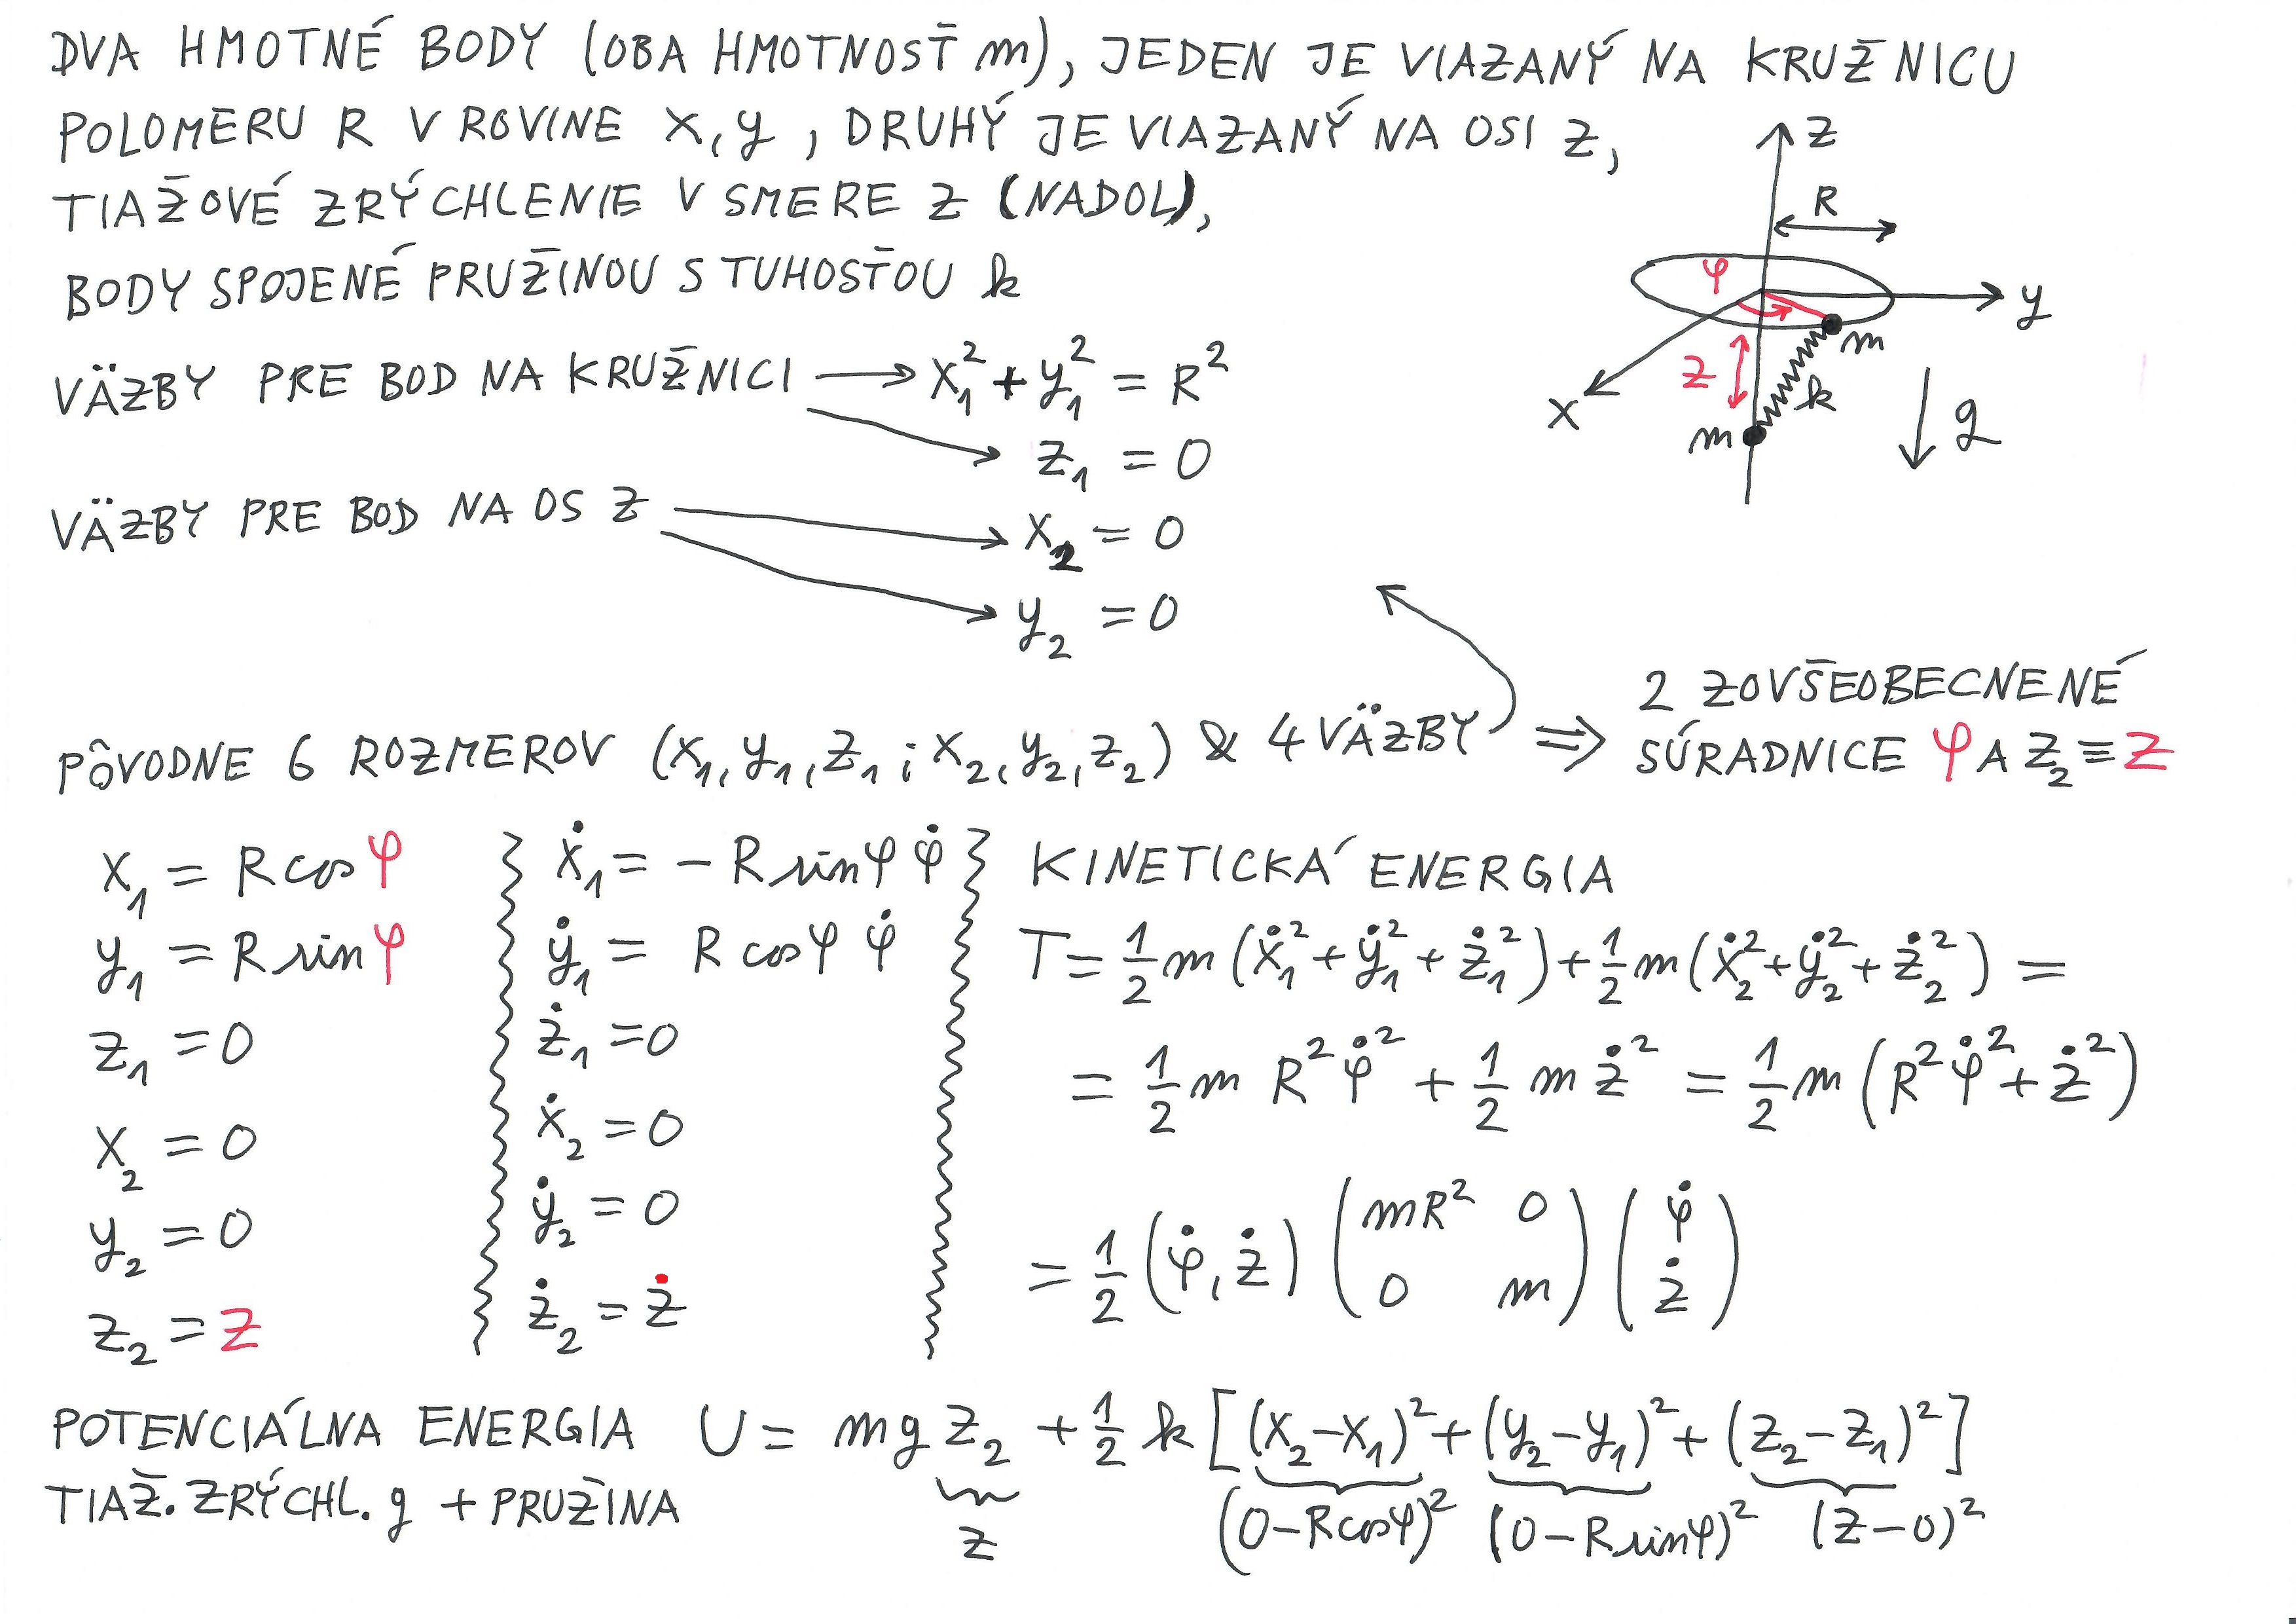 DVA HMOTNÉ BODY (OBA HMOTNOSŤ m), JEDEN JE VIAZANÝ NA KRUŽNICU
POLOMERU R V ROVINE x, y, DRUHÝ JE VIAZANÝ NA OSI z,
TIAŽOVÉ ZRÝCHLENIE V SMERE z (NADOL),
BODY SPOJENÉ PRUŽINOU S TUHOSŤOU k
z
R
φ
y
m
z
k
x
m
g
VÄZBY PRE BOD NA KRUŽNICI → x₁² + y₁² = R²
z₁ = 0
VÄZBY PRE BOD NA OS z → x₂ = 0
y₂ = 0
PÔVODNE 6 ROZMEROV (x₁, y₁, z₁ ; x₂, y₂, z₂) & 4 VÄZBY ⇒ 2 ZOVŠEOBECNENÉ
SÚRADNICE φ A z₂ ≡ z
x₁ = R cos φ
y₁ = R sin φ
z₁ = 0
x₂ = 0
y₂ = 0
z₂ = z
ẋ₁ = − R sin φ φ̇
ẏ₁ = R cos φ φ̇
ż₁ = 0
ẋ₂ = 0
ẏ₂ = 0
ż₂ = ż
KINETICKÁ ENERGIA
T = 1/2 m (ẋ₁² + ẏ₁² + ż₁²) + 1/2 m (ẋ₂² + ẏ₂² + ż₂²) =
= 1/2 m R² φ̇² + 1/2 m ż² = 1/2 m (R² φ̇² + ż²)
= 1/2 (φ̇, ż) (mR² 0 ; 0 m) (φ̇ ; ż)
POTENCIÁLNA ENERGIA U = m g z₂ + 1/2 k [(x₂ − x₁)² + (y₂ − y₁)² + (z₂ − z₁)²]
TIAŽ. ZRÝCHL. g + PRUŽINA z (0 − R cos φ)² (0 − R sin φ)² (z − 0)²